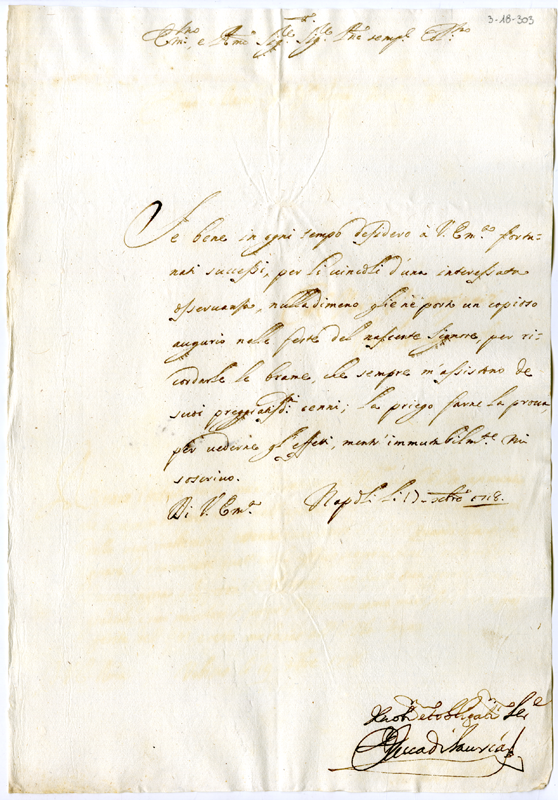 3-18-303
Em.mo, e R.mo Sig.re Sig.re P.ne semp.e Col.mo
Se bene in ogni tempo desidero à V. Em.za fortu-
nati successi, per li vincoli d'una interessata
osservanza, nulladimeno glie nè porto un copioso
augurio nelle feste del nascente Signore, per ri-
cordarle le brame, che sempre m'assistono de
suoi preggiatis.mi cenni; La priego farne la prova,
per vederne gl'effetti, mentr'immutabilm.te mi
soscrivo.
Di V. Em.za Napoli li 17 1718.